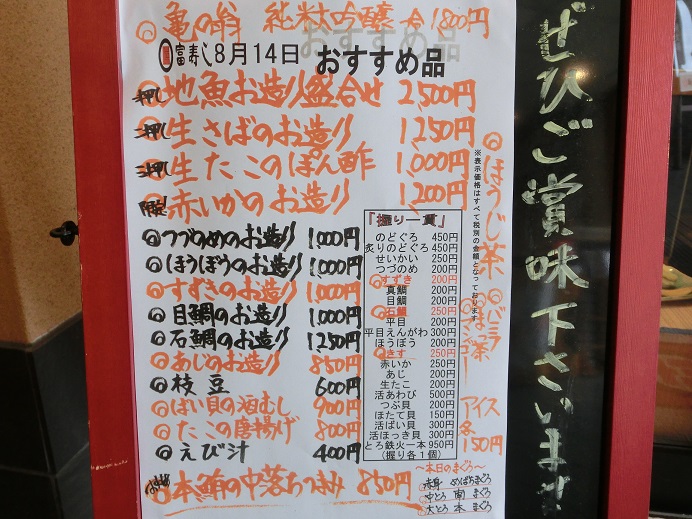 ◎亀の翁 純米大吟醸 一合 1800円
富寿し 8月14日 おすすめ品
一押し 地魚お造り盛合せ 2,500円
二押し 生さばのお造り 1,250円
三押し 生たこのぽん酢 1,000円
赤いかのお造り 1,200円
◎つづのめのお造り 1,000円
◎ほうぼうのお造り 1,000円
◎すずきのお造り 1,000円
◎目鯛のお造り 1,000円
◎石鯛のお造り 1250円
◎あじのお造り 850円
◎枝豆 600円
◎ばい貝の酒むし 900円
◎たこの唐揚げ 800円
◎えび汁 400円
本鮪の中落ちつまみ 850円
「握り一貫」
のどぐろ 450円
炙りのどぐろ 450円
せいかい 250円
つづのめ 200円
◎すずき 200円
真鯛 200円
目鯛 200円
◎石鯛 250円
平目 200円
平目えんがわ 300円
ほうぼう 200円
◎きす 250円
赤いか 250円
あじ 200円
生たこ 200円
活あわび 500円
つぶ貝 200円
ほたて貝 150円
活ばい貝 300円
活ほっき貝 300円
とろ鉄火一本 950円
(握り各1個)
～本日のまぐろ～
赤身 めばちまぐろ
中とろ 南まぐろ
大とろ 本まぐろ
※表示価格はすべて税別の金額となっております
◎ほうじ茶
◎バニラ
◎抹茶
◎マンゴー
アイス
各150円
ぜひご賞味下さいませ